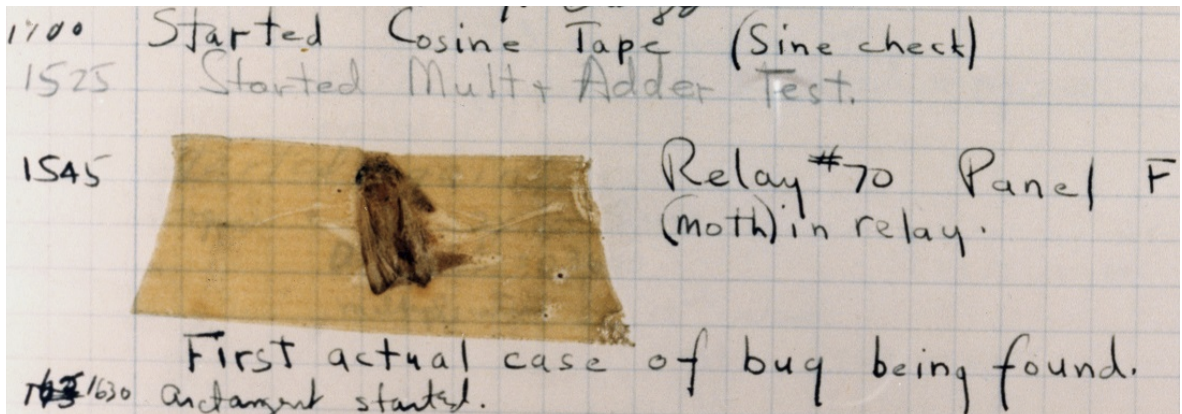 1700 Started Cosine Tape (Sine check)
1525 Started Mult + Adder Test.
1545 Relay #70 Panel F
(moth) in relay.
First actual case of bug being found.
1630 arctangent started.